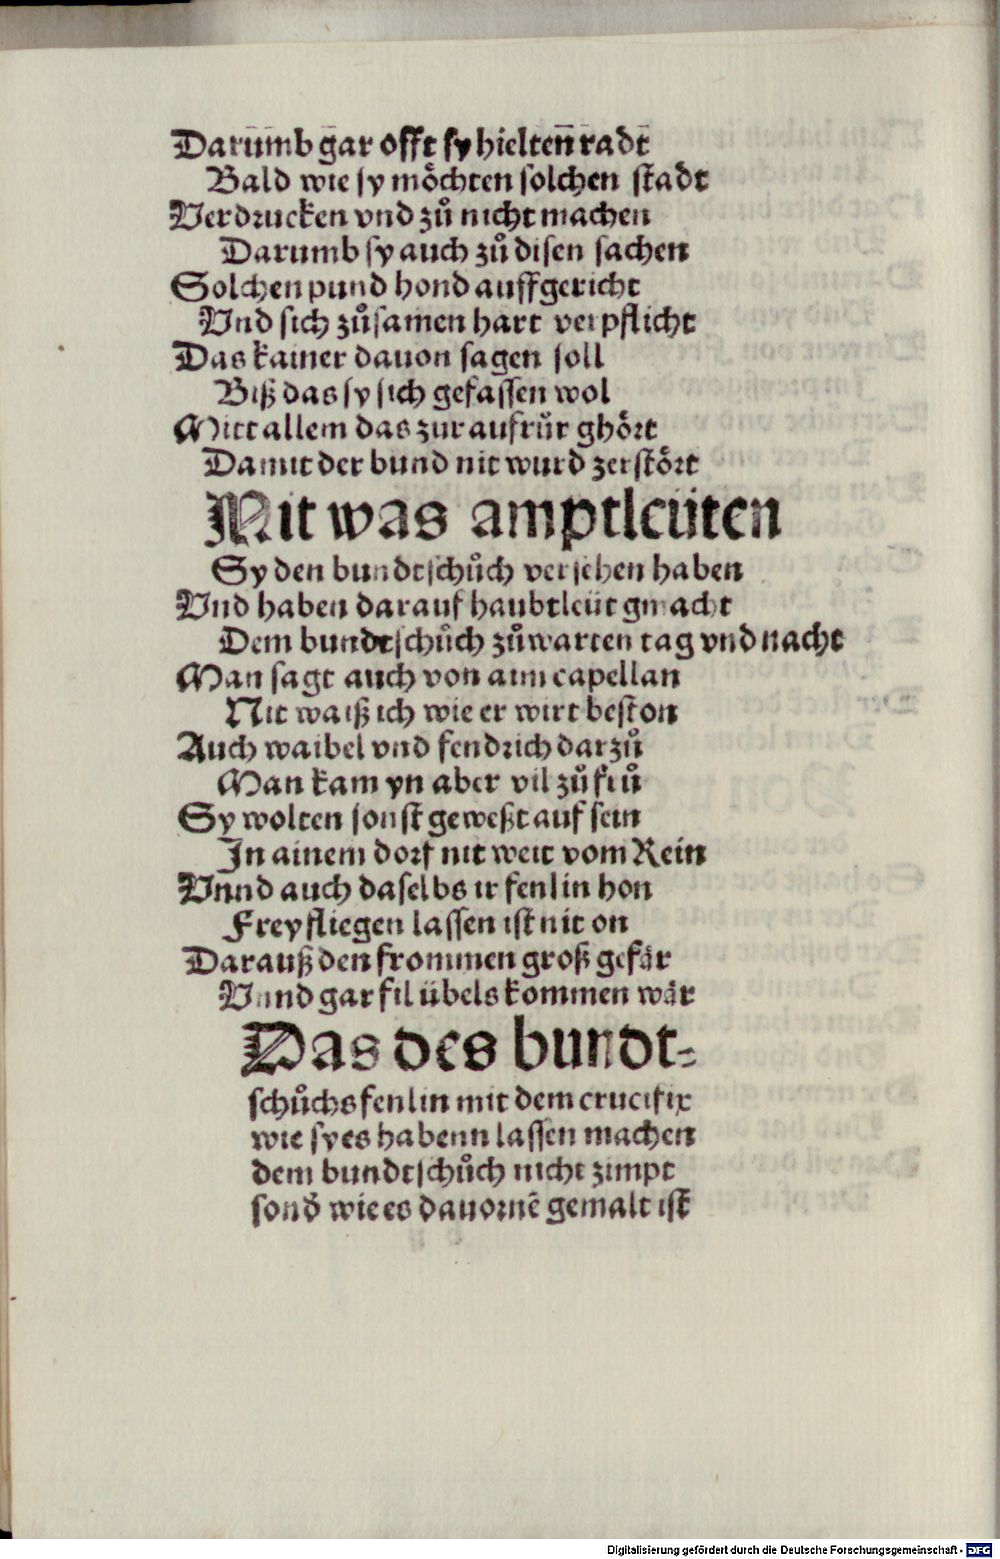 Darumb gar offt sy hielten radt
Bald wie sy möchten solchen stadt
Verdrucken vnd zů nicht machen
Darumb sy auch zů disen sachen
Solchen pund hond auffgericht
Vnd sich zůsamen hart verpflicht
Das kainer dauon sagen soll
Biß das sy sich gefassen wol
Mitt allem das zur aufrůr ghört
Damit der bund nit wurd zerstört
Mit was amptleüten
Sy den bundtschůch versehen haben
Vnd haben darauf haubtleüt gmacht
Dem bundtschůch zůwarten tag vnd nacht
Man sagt auch von aim capellan
Nit waiß ich wie er wirt beston
Auch waibel vnd fendrich darzů
Man kam yn aber vil zů frů
Sy wolten sonst geweßt auf sein
In ainem dorf nit weit vom Rein
Vnnd auch daselbs ir fenlin hon
Frey fliegen lassen ist nit on
Darauß den frommen groß gefär
Vnnd gar fil übels kommen wär
Das des bundt⸗
schůchs fenlin mit dem crucifix
wie sy es habenn lassen machen
dem bundtschůch nicht zimpt
sond̕ wie es dauornē gemalt ist
Digitalisierung gefördert durch die Deutsche Forschungsgemeinschaft - DFG